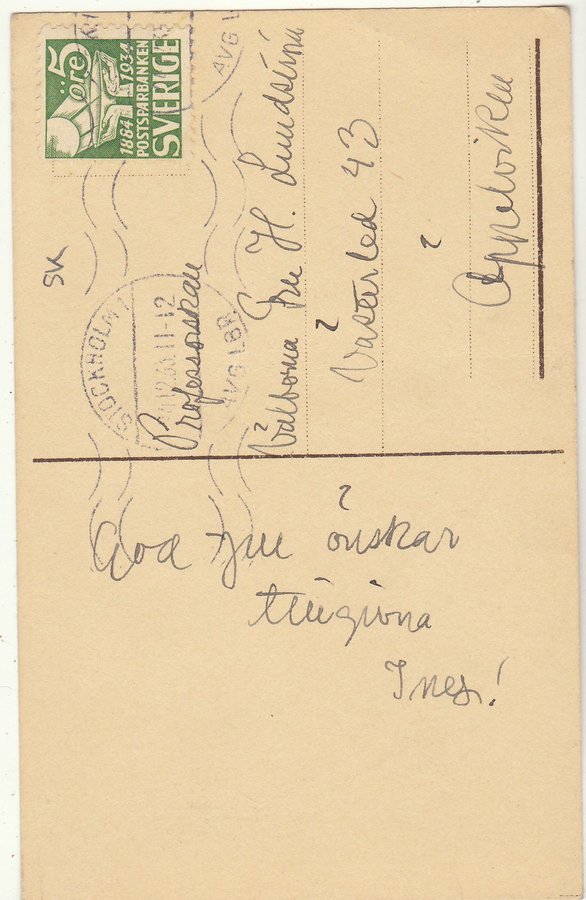 God Jul önskar
tillgivna
Ines!
Professorskan
Välborna Fru H.
Västerled 43
Äppelviken
SK
5
öre
1884 1934
POSTSPARBANKEN
SVERIGE
STOCKHOLM 1
11-12
AVG LBR
AVG L